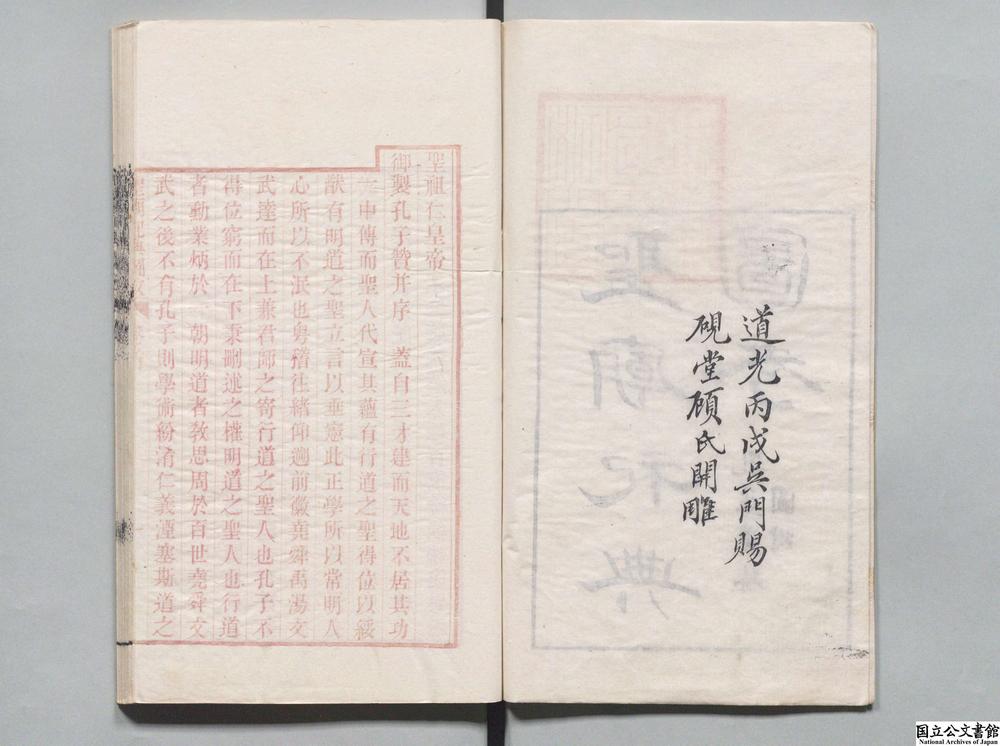 道光丙戌吳門賜
硯堂顧氏開雕
聖祖仁皇帝
御製孔子贊并序　蓋自三才建而天地不居其功
一中傳而聖人代宣其蘊有行道之聖得位以綏
猷有明道之聖立言以垂憲此正學所以常明人
心所以不泯也粵稽往緒仰遡前徽堯舜禹湯文
武達而在上兼君師之寄行道之聖人也孔子不
得位窮而在下秉刪述之權明道之聖人也行道
者勳業炳於一朝明道者敎思周於百世堯舜文
武之後不有孔子則學術紛淆仁義湮塞斯道之
国立公文書館
National Archives of Japan